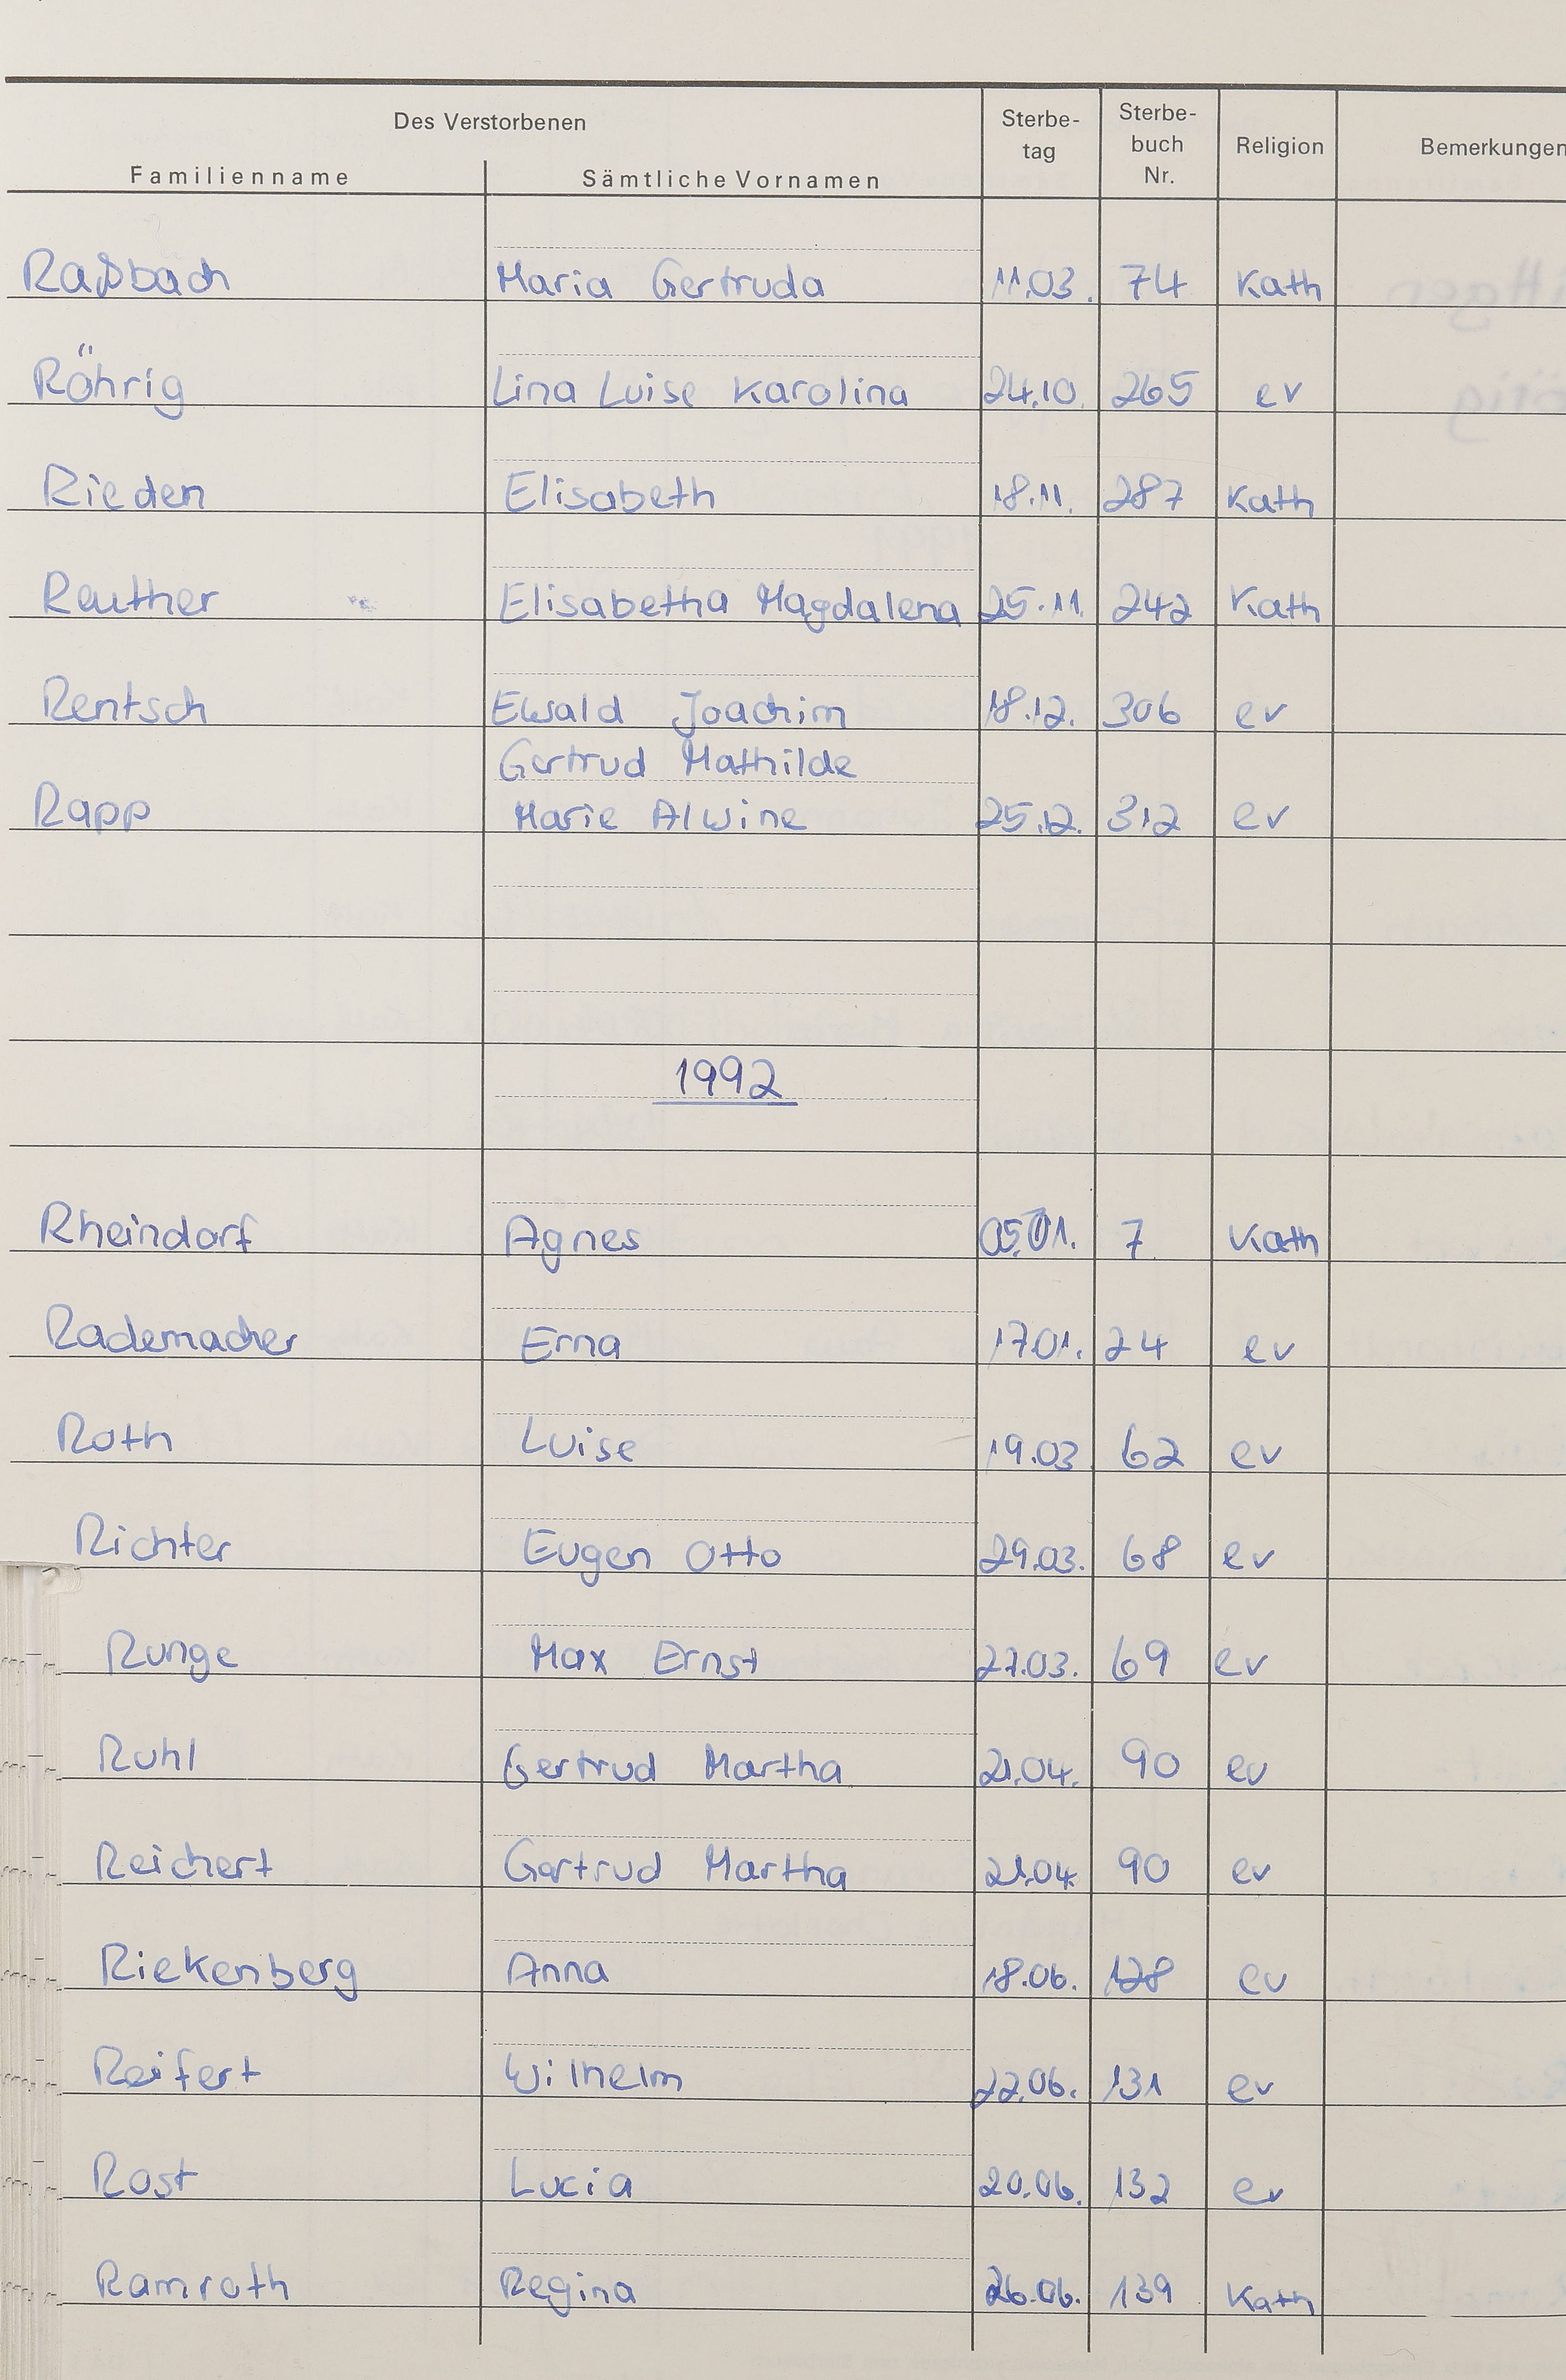 Des Verstorbenen
Familienname Sämtliche Vornamen Sterbe-tag Sterbe-buch Nr. Religion Bemerkungen
Raßbach Maria Gertruda 11.03. 74 Kath
Röhrig Lina Luise Karolina 24.10. 265 ev
Rieden Elisabeth 18.11. 287 Kath
Reuther Elisabetha Magdalena 25.11. 242 Kath
Rentsch Ewald Joachim 18.12. 306 ev
Gertrud Mathilde
Rapp Marie Alwine 25.12. 312 ev
1992
Rheindorf Agnes 05.01. 7 Kath
Rademacher Erna 17.01. 24 ev
Roth Luise 19.03 62 ev
Richter Eugen Otto 29.03. 68 ev
Runge Max Ernst 27.03. 69 ev
Ruhl Gertrud Martha 21.04. 90 ev
Reichert Gertrud Martha 21.04. 90 ev
Riekenberg Anna 18.06. 128 ev
Reifert Wilhelm 22.06. 131 ev
Rost Lucia 20.06. 132 ev
Ramroth Regina 26.06. 139 Kath